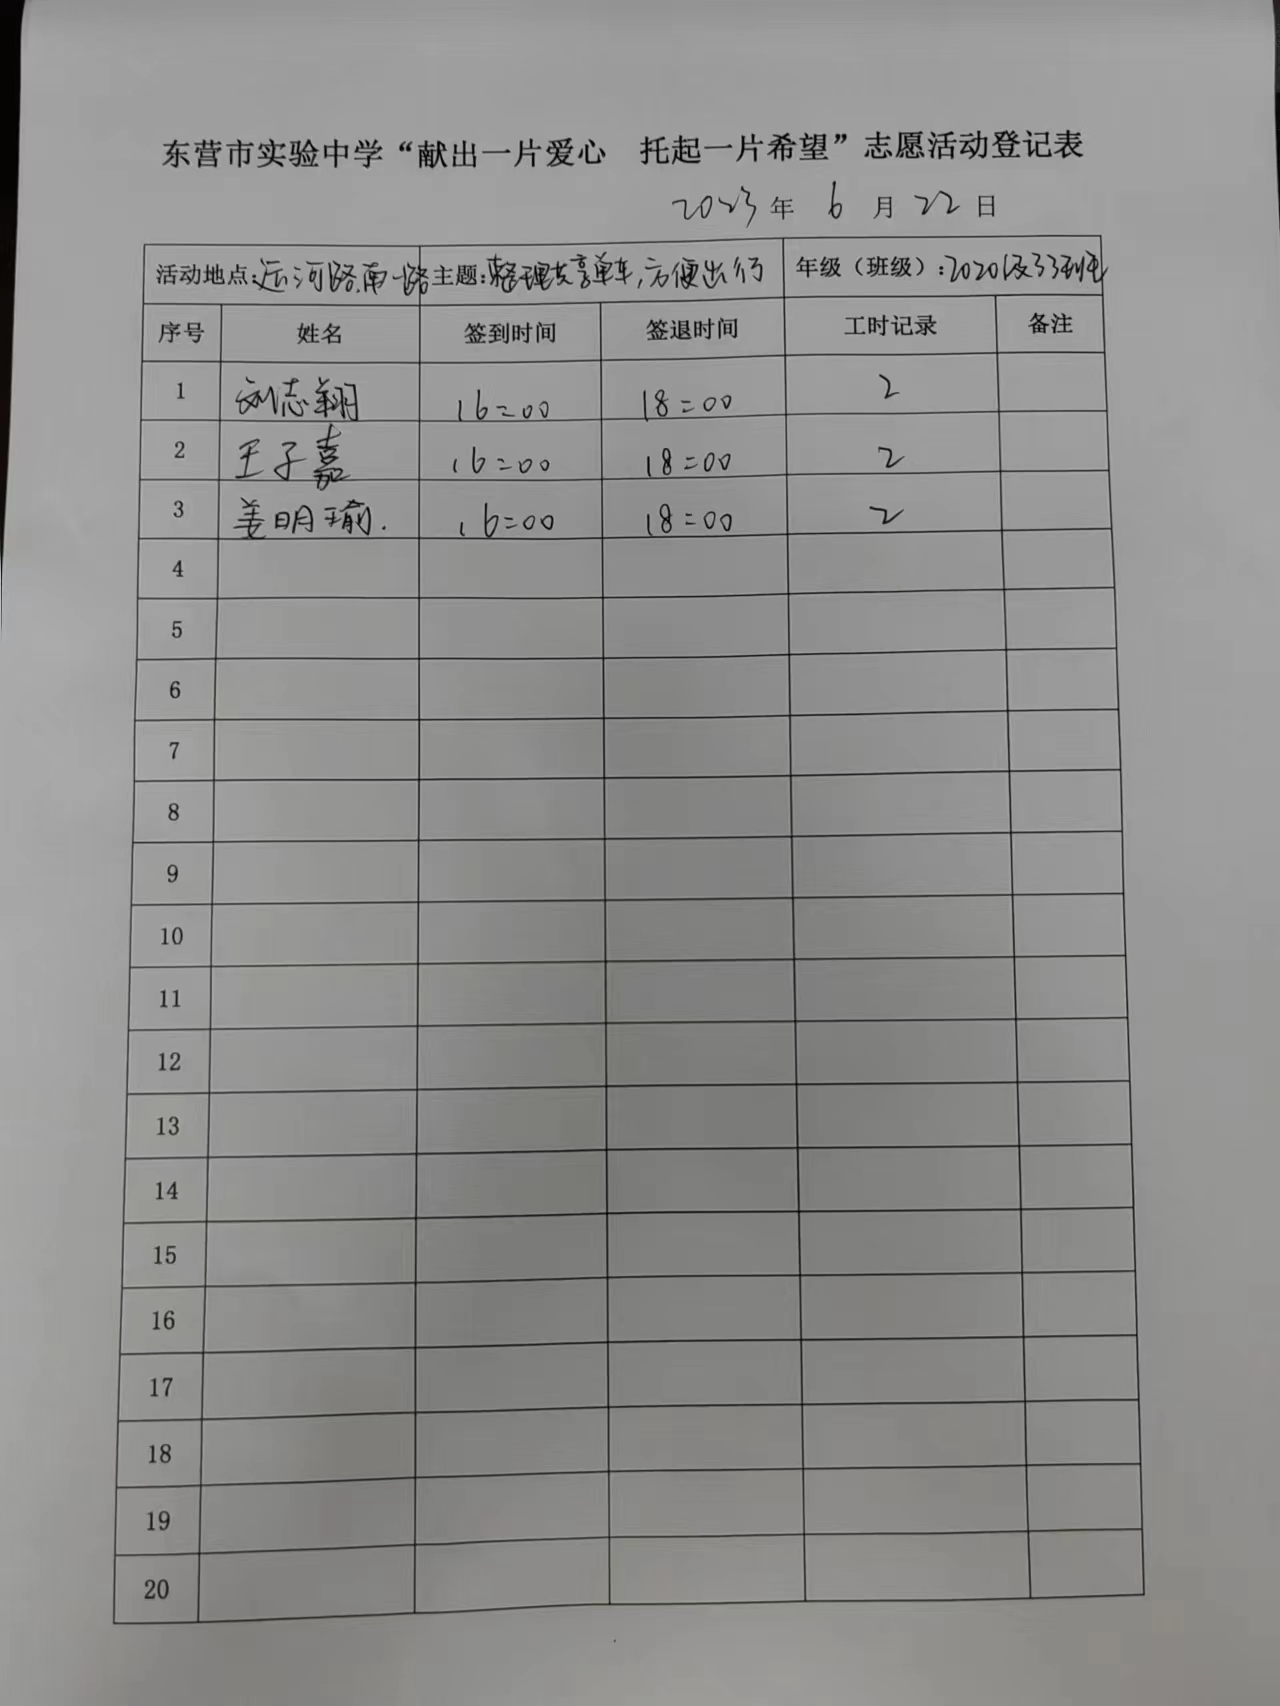 东营市实验中学“献出一片爱心 托起一片希望”志愿活动登记表
2023年 6 月 22 日
活动地点:运河路南一路 主题:整理共享单车,方便出行 年级（班级）:2020级33
序号 姓名 签到时间 签退时间 工时记录 备注
1 刘志翔 16:00 18:00 2
2 王子嘉 16:00 18:00 2
3 姜明瑜. 16:00 18:00 2
4
5
6
7
8
9
10
11
12
13
14
15
16
17
18
19
20